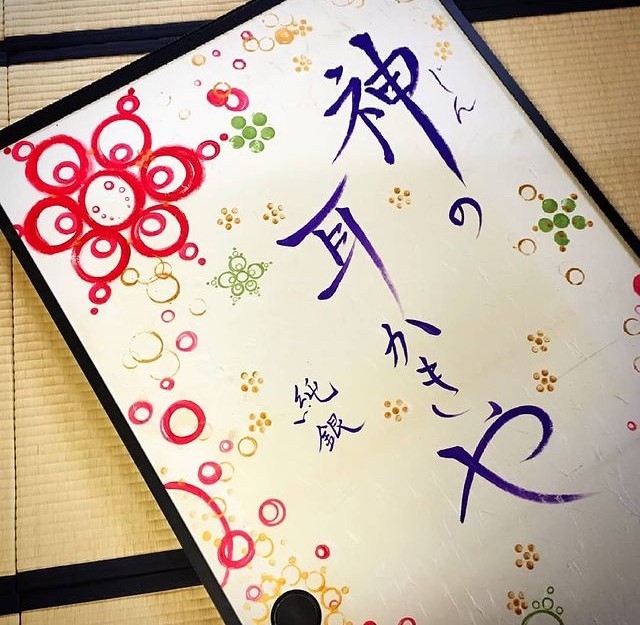 神の
じん
耳かきや
純銀